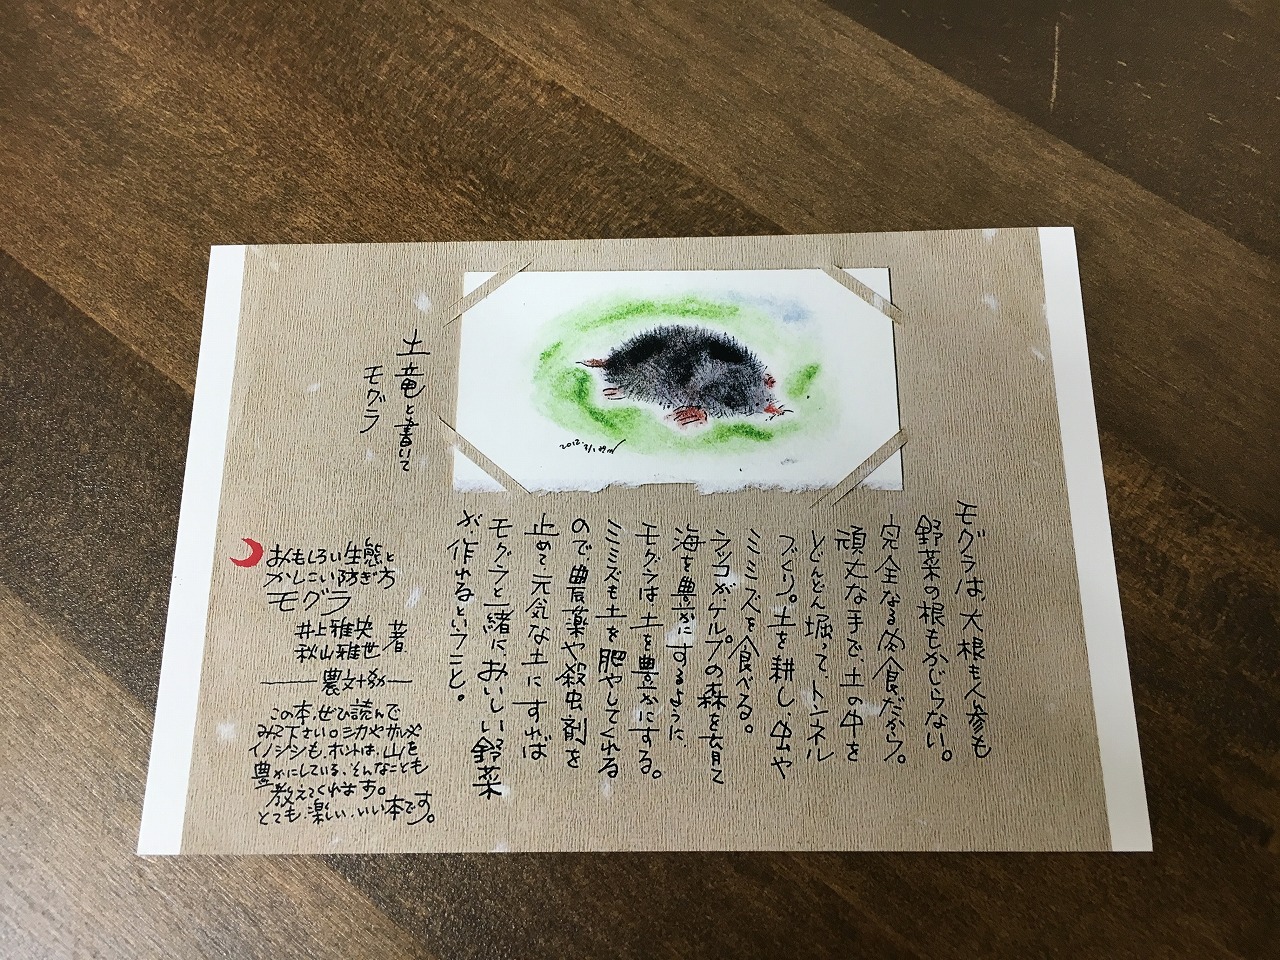 土竜と書いて
モグラ
モグラは、大根も人参も
野菜の根もかじらない。
完全なる肉食だから。
頑丈な手で、土の中を
どんどん掘って、トンネル
づくり。土を耕し、虫や
ミミズを食べる。
ラッコがケルプの森を育て
海を豊かにするように、
モグラは土を豊かにする。
ミミズも土を肥やしてくれる
ので農薬や殺虫剤を
止めて元気な土にすれば
モグラと一緒においしい野菜
が、作れるということ。
おもしろい生態と
かしこい防ぎ方
モグラ
井上雅央
秋山雅世 著
農文協
この本、ぜひ読んで
みて下さい。シカやサルや
イノシシも、ホントは、山を
豊かにしている、そんなことも
教えてくれます。
とても、楽しい、いい本です。
2012.